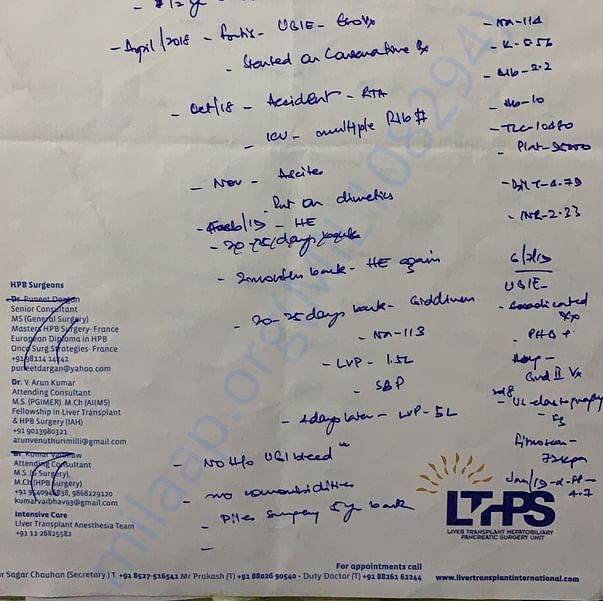 - April/2018 - Fortis - UGIE - EsoVx
- Started on Conservative Rx
- Oct/18 - Accident - RTA
- ICU - multiple Rib #
- Nov - Ascites
- Put on diuretics
- Feb/19 - HE
- 20-25/days
- 2 months back - HE again
- 20-25 days back - Giddiness
- Na-113
- LVP - 1.5L
- SBP
- 4 days later - LVP - 5L
- No H/o UGI bleed
- no comorbidities
- Piles surgery 5yr back
-
- Na-114
- K-0.56
- Alb-2.2
- Hb-10
- TLC-10480
- Plat-
- INR-2.33
UGIE-
- Eradicated
- PHG +
Grd II Vx
2018
- UL elastography
- F3
Fibroscan-
72kpa
Jan/19-
4.7
HPB Surgeons
Dr. Puneet Dargan
Senior Consultant
MS (General Surgery)
Masters HPB Surgery- France
European Diploma in HPB
Onco Surg Strategies- France
+91 98114 14141
puneetdargan@yahoo.com
Dr. V. Arun Kumar
Attending Consultant
M.S. (PGIMER). M.Ch (AIIMS)
Fellowship in Liver Transplant
& HPB Surgery (IAH)
+91 9013980321
arunvenuthurimilli@gmail.com
Dr Kumar Vaibhaw
Attending Consultant
M.S. (G Surgery).
M.Ch(HPB Surgery)
9868229120
kumarvaibhav93@gmail.com
Intensive Care
Liver Transplant Anesthesia Team
+91 11-26825582
LTHPS
LIVER TRANSPLANT HEPATOBILIARY
PANCREATIC SURGERY UNIT
For appointments call
r Sagar Chauhan (Secretary) T +91 8527-516541 Mr Prakash (T) +91 88026 90540 - Duty Doctor (T) +91 88261 62244
www.livertransplantinternational.com
milaap.org